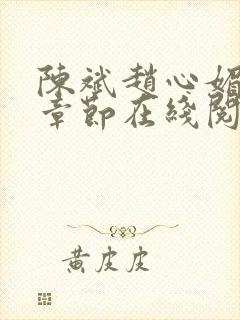 陳斌趙心媚
章節在綫閱
黃皮皮